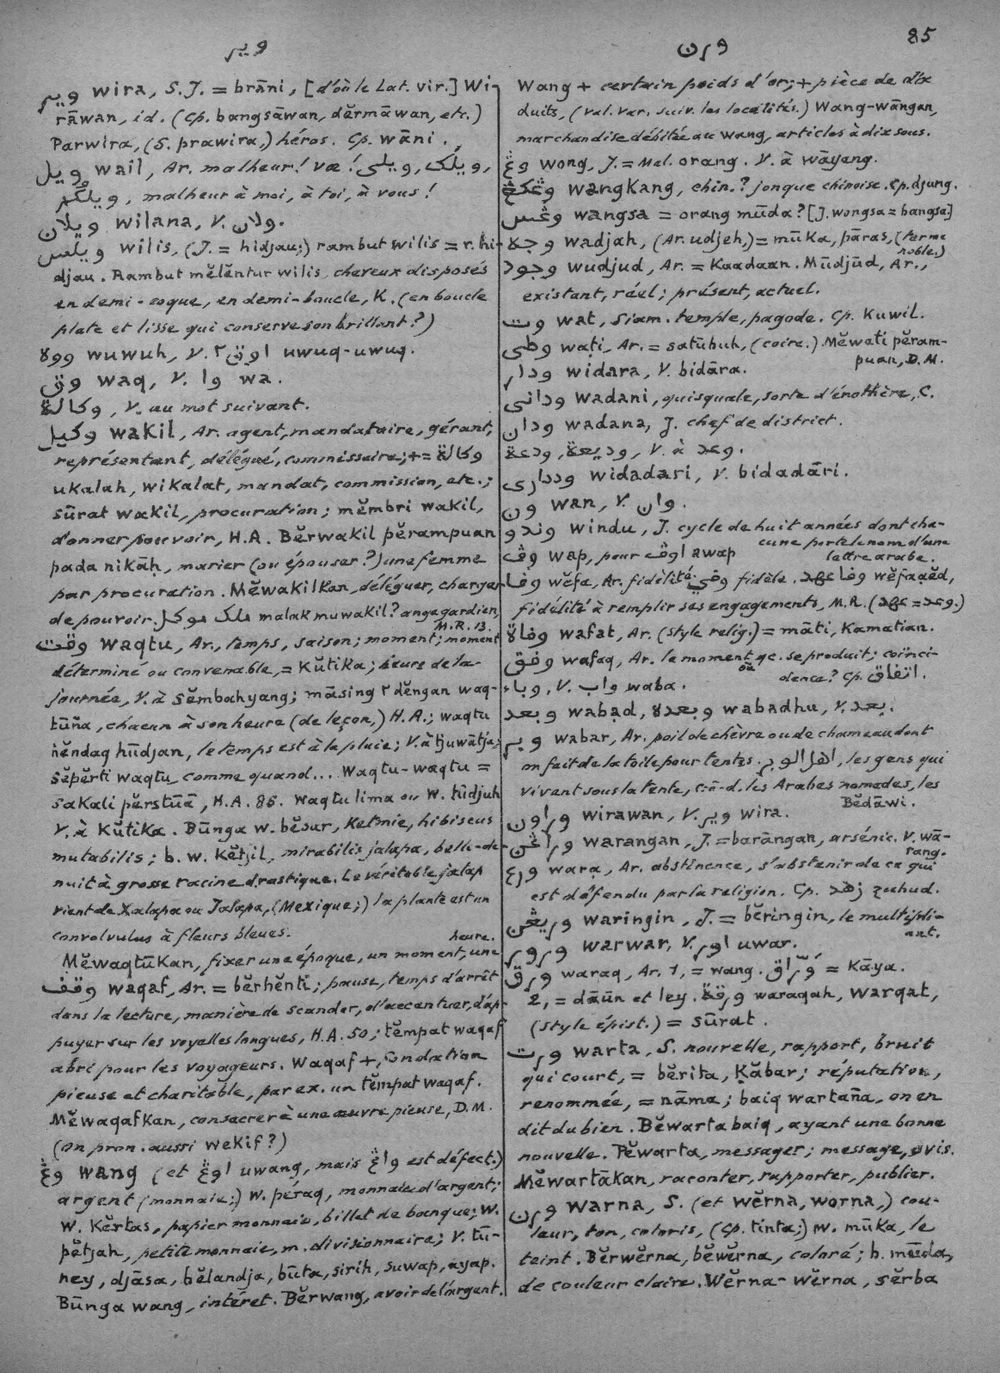 وير
ورن
85
وير wira, S. J. = brāni, [d'où le Lat. vir.] Wi-
rāwan, id. (Cp. bangsāwan, dĕrmāwan, etc.)
Parwira, (S. prawira,) héros. Cp. wāni.
ويل wail, Ar. malheur! væ! ويلك, ويلي,
ويلكم, malheur à moi, à toi, à vous!
ويلان wilana, V. ولان.
ويلس wilis, (J. = hidjau;) rambut wilis = r. hi-
djau. Rambut mĕlĕntur wilis, cheveux disposés
en demi-coque, en demi-boucle, K. (en boucle
plate et lisse qui conserve son brillant?)
ووه wuwuh, V. اوق٢ uwuq-uwuq.
وق waq, V. وا wa.
وكالة, V. au mot suivant.
وكيل wakil, Ar. agent, mandataire, gérant,
représentant, délégué, commissaire; += وكالة
ukalah, wikalat, mandat, commission, etc.;
sūrat wakil, procuration; mĕmbri wakil,
donner pouvoir, H.A. Bĕrwakil pĕrampuan
pada nikāḥ, marier (ou épouser?) une femme
par procuration. Mĕwakilkan, déléguer, charger
de pouvoir. ملك موكل malak muwakil? ange gardien,
M.R. 13.
وقت waqtu, Ar., temps, saison; moment; moment
déterminé ou convenable, = kŭtika; heure de la
journée, V. à sĕmbahyang; māsing٢ dĕngan waq-
tūña, chacun à son heure (de leçon,) H.A.; waqtu
hĕndaq hūdjan, le temps est à la pluie; V. à tjuwātja;
sĕpĕrti waqtu, comme quand... Waqtu-waqtu =
sakali pĕrstūā, H.A. 86. Waqtu lima ou w. hidjuh
V. à kŭtika. Būnga w. bĕsur, ketmie, hibiscus
mutabilis; b. w. kĕtjil, mirabilis jalapa, belle-de-
nuit à grosse racine drastique. Le véritable jalap
vient de Xalapa ou Jalapa, (Mexique;) la plante est un
convolvulus à fleurs bleues.
heure.
Mĕwaqtūkan, fixer une époque, un moment, une
وقف waqaf, Ar. = bĕrhĕnti; pause, temps d'arrêt
dans la lecture, manière de scander, d'accentuer, d'ap-
puyer sur les voyelles longues, H.A. 50; tĕmpat waqaf
abri pour les voyageurs. Waqaf +, fondation
pieuse et charitable, par ex. un tĕmpat waqaf.
Mĕwaqafkan, consacrer à une œuvre pieuse, D.M.
(On pron. aussi wekif?)
وڠ wang (et اوڠ uwang, mais واڠ est défect.)
argent (monnaie;) w. péraq, monnaie d'argent;
w. kĕrtas, papier monnaie, billet de banque; w.
pĕtjah, petite monnaie, m. divisionnaire; V. tū-
ney, djāsa, bĕlandja, būta, sirih, suwap, asap.
Būnga wang, intéret. Bĕrwang, avoir de l'argent.
Wang + certain poids d'or; + pièce de dix
duits, (val. var. suiv. les localités.) Wang-wāngan,
marchandise débitée au wang, articles à dix sous.
وڠ wong, J. = Mal. orang. V. à wāyang.
وڠكڠ wangkang, chin.? jonque chinoise. Cp. djung.
وڠس wangsa = orang mūda? [J. wongsa = bangsa]
وجه wadjah, (Ar. udjeh,) = mūka, pāras, (terme
noble.)
وجود wudjud, Ar. = kaadaan. Mūdjūd, Ar.,
existant, réel; présent, actuel.
وت wat, Siam. temple, pagode. Cp. kuwil.
وطى waṭi, Ar. = satūbuh, (coire.) Mĕwaṭi pĕram-
puan, D.M.
ودار widara, V. bidāra.
وداني wadani, quisquale, sorte d'énothère, C.
ودان wadana, J. chef de district.
وديعة, ودعة, V. à وعد.
وددارى widadari, V. bidadāri.
ون wan, V. وان.
وندو windu, J. cycle de huit années dont cha-
cune porte le nom d'une
lettre arabe.
وڤ wap, pour اوڤ awap
وفا wĕfa, Ar. fidélité وفي fidèle. وفا عهد wĕfaạĕd,
fidélité à remplir ses engagements, M.R. (عهد = وعد.)
وفاة wafat, Ar. (style relig.) = māti, kamatian.
وفق wafaq, Ar. le moment où qc. se produit; coïnci-
dence? Cp. اتفاق.
وباء, V. واب waba.
وبعد wabaḍ, وبعده wabadhu, V. بعد.
وبر wabar, Ar. poil de chèvre ou de chameau dont
on fait de la toile pour tentes. اهل الوبر, les gens qui
vivant sous la tente, c-à-d. les Arabes nomades, les
Bĕdāwi.
وراون wirawan, V. وير wira.
وراڠن warangan, J. = barāngan, arsénic. V. wā-
rang.
ورع wara, Ar. abstinence, s'abstenir de ce qui
est défendu par la religion. Cp. زهد zuhud.
وريڠن waringin, J. = bĕringin, le multipli-
ant.
ورور warwar, V. اور uwar.
ورق waraq, Ar. 1, = wang. وراق = kāya.
2, = dāūn et ley. ورقة waraqah, warqat,
(style épist.) = sūrat.
ورت warta, S. nouvelle, rapport, bruit
qui court, = bĕrita, ḳābar; réputation,
renommée, = nāma; baiq wartaña, on en
dit du bien. Bĕwarta baiq, ayant une bonne
nouvelle. Pĕwarta, messager; message, avis.
Mĕwartākan, raconter, rapporter, publier.
ورن warna, S. (et wĕrna, worna,) cou-
leur, ton, coloris, (Cp. tinta;) w. mūka, le
teint. Bĕrwĕrna, bĕwĕrna, coloré; b. mūda,
de couleur claire. Wĕrna-wĕrna, sĕrba